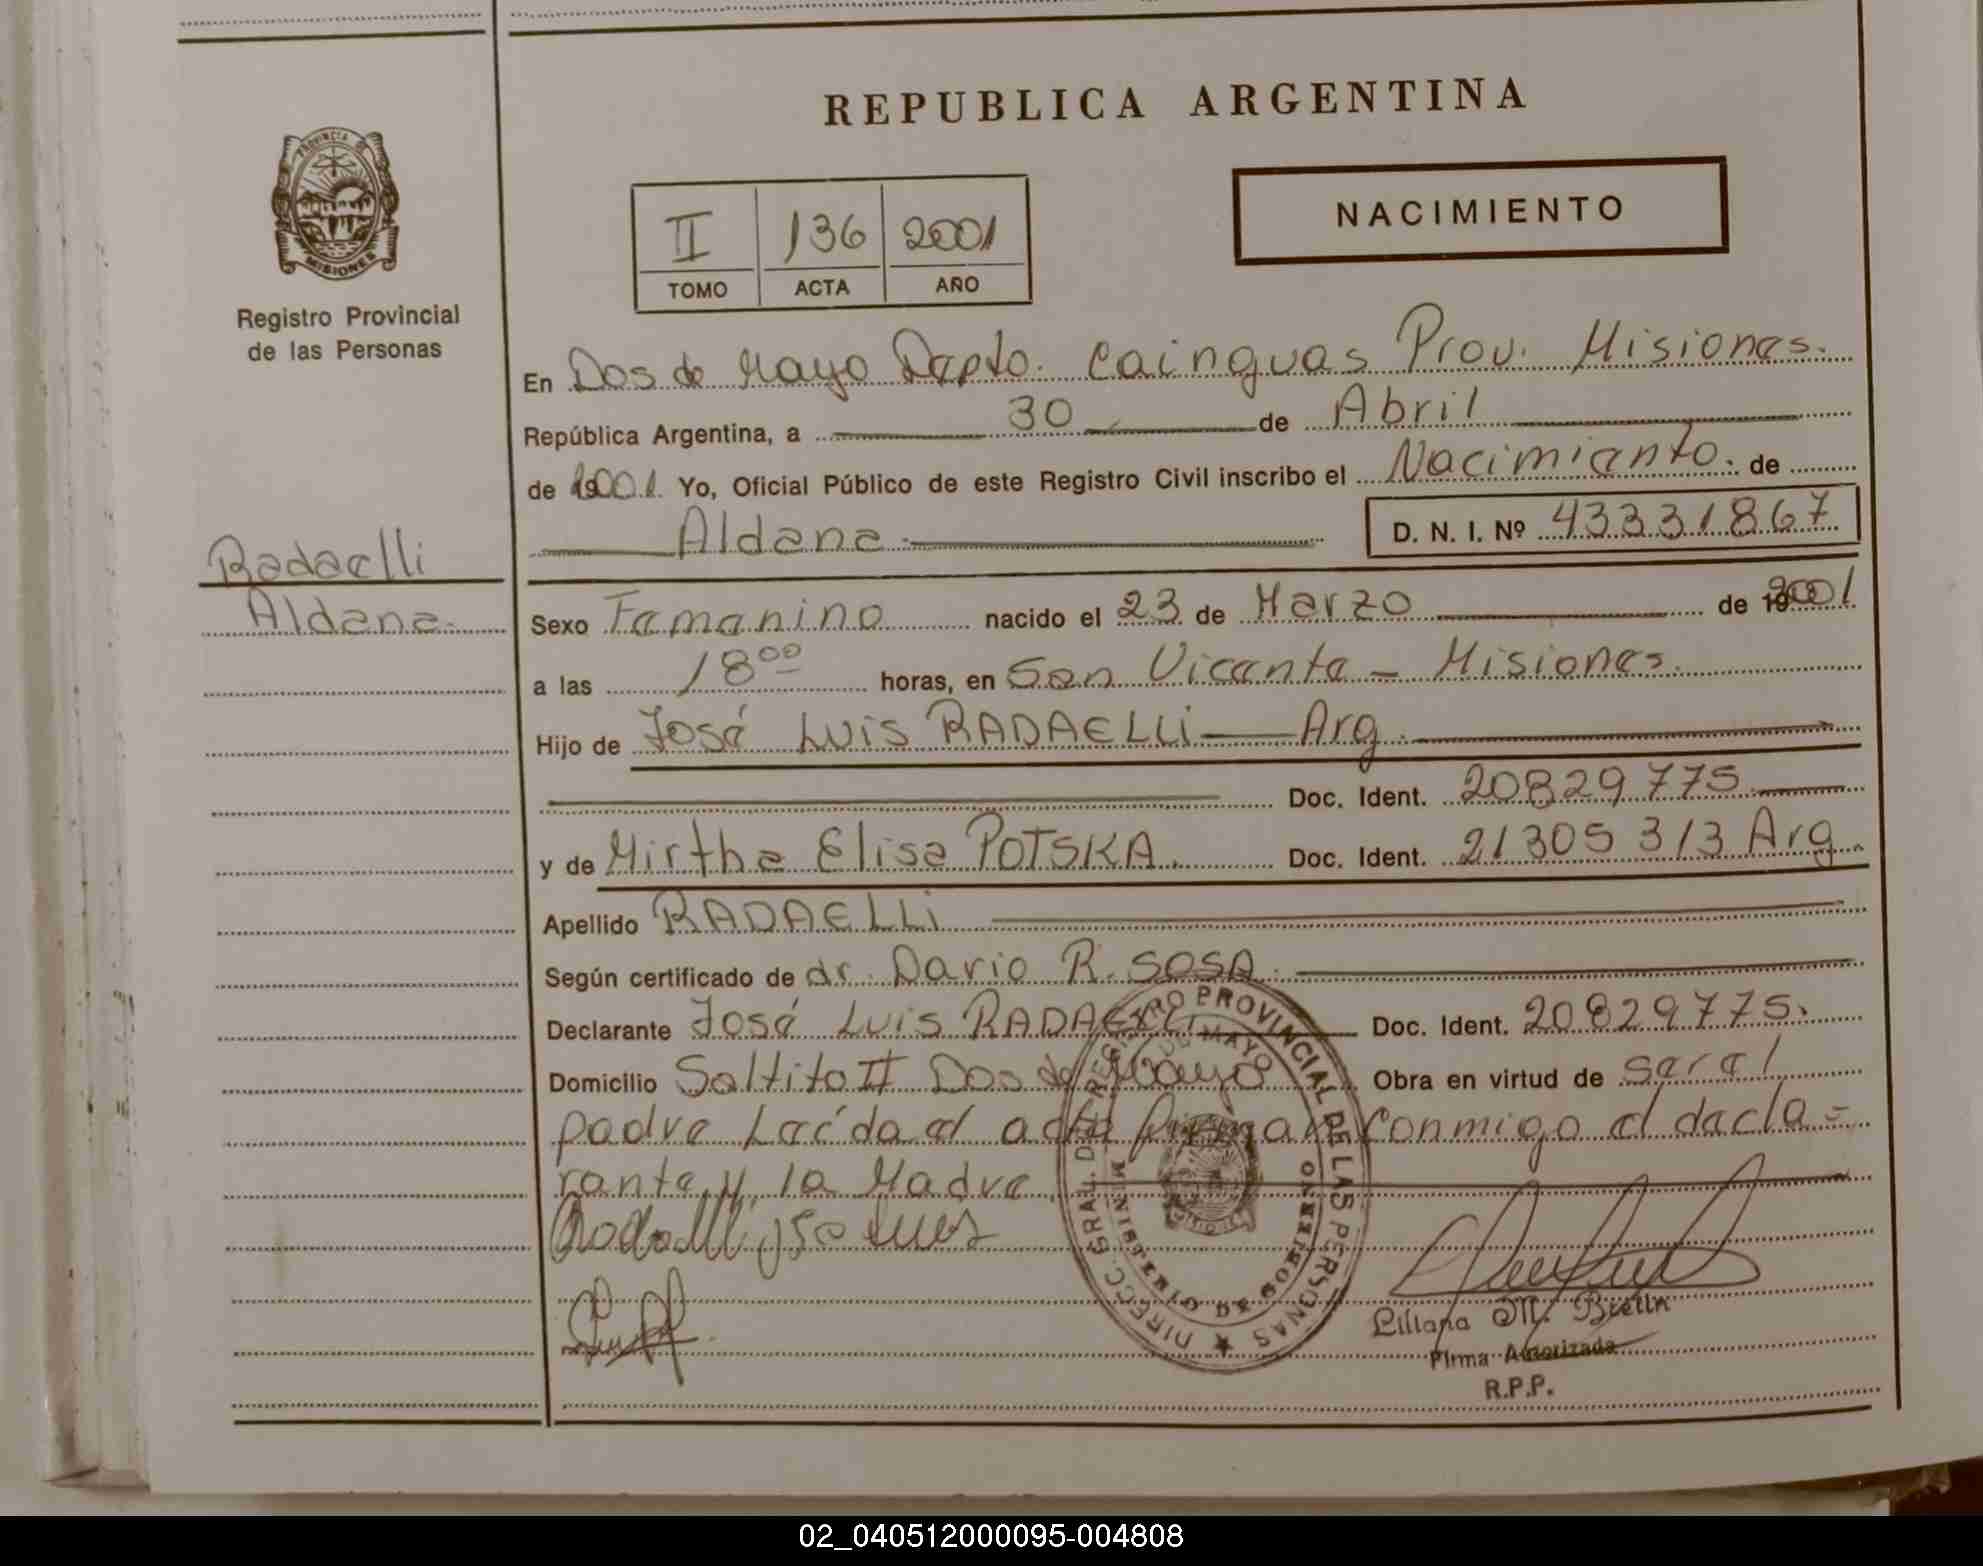 REPUBLICA ARGENTINA
PROVINCIA DE
MISIONES
Registro Provincial
de las Personas
II 136 2001
TOMO ACTA AÑO
NACIMIENTO
En Dos de Mayo Depto. Cainguas Prov. Misiones.
República Argentina, a 30 de Abril
de 2001. Yo, Oficial Público de este Registro Civil inscribo el Nacimiento. de
Aldana. D. N. I. Nº 43331867
Radaelli
Aldana.
Sexo Femenino nacido el 23 de Marzo de 2001
a las 18⁰⁰ horas, en San Vicente - Misiones.
Hijo de José Luis RADAELLi Arg.
Doc. Ident. 20829775
y de Mirtha Elisa POTSKA. Doc. Ident. 21305313 Arg.
Apellido RADAELLi
Según certificado de dr. Dario R. SOSA.
Declarante José Luis RADAELLi Doc. Ident. 20829775.
Domicilio Saltito II Dos de Mayo Obra en virtud de ser el
padre Leída el acta firman conmigo el decla=
rante y la Madre.
Radaelli jose Luis
DIRECC. GRAL. DEL REGISTRO PROVINCIAL DE LAS PERSONAS
DE MAYO
MINISTERIO DE GOBIERNO
Liliana M.
Firma Autorizada
R.P.P.
02_040512000095-004808